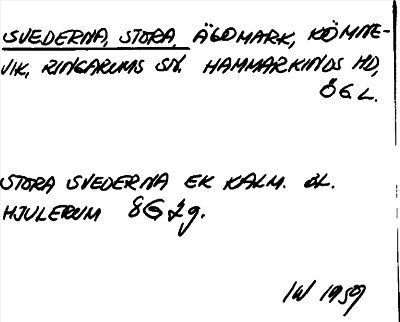 SVEDERNA, STORA, ÄGOMARK, KÖMNE-
VIK, RINGARUMS SN. HAMMARKINDS HD,
ÖGL.
STORA SVEDERNA EK KALM. ÖL.
HJULERUM 8G 2g.
IW 1959